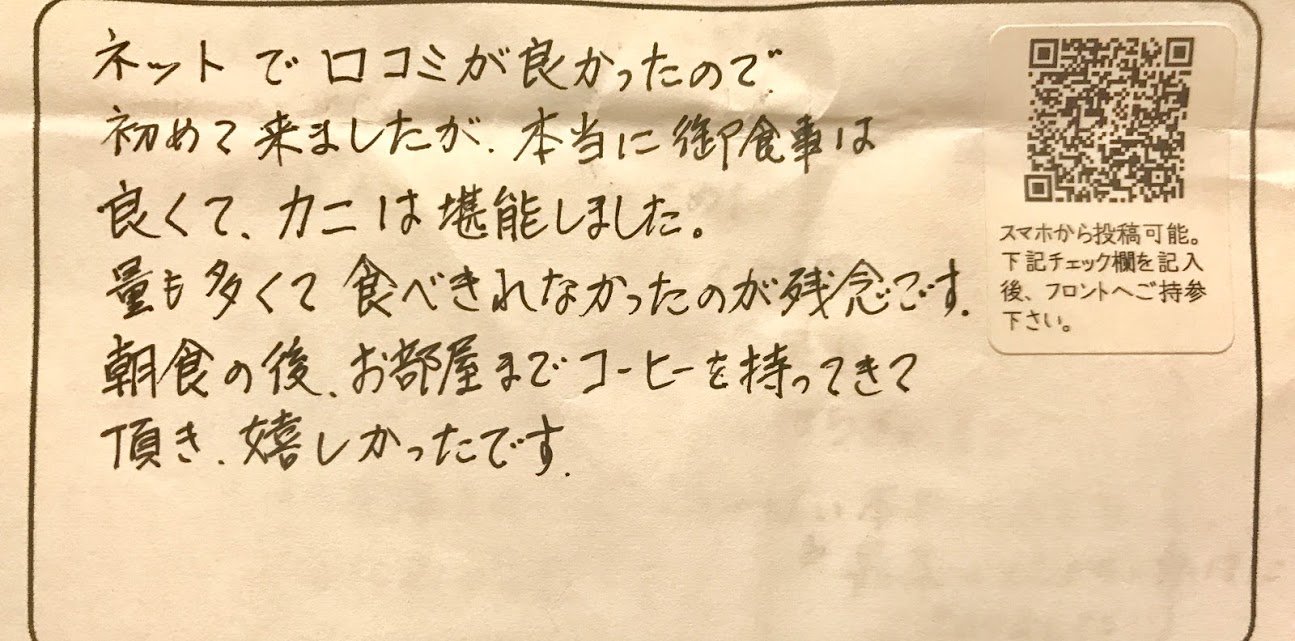 ネットで口コミが良かったので、
初めて来ましたが、本当に御食事は
良くて、カニは堪能しました。
量も多くて食べきれなかったのが残念です。
朝食の後、お部屋までコーヒーを持ってきて
頂き、嬉しかったです。
スマホから投稿可能。
下記チェック欄を記入
後、フロントへご持参
下さい。